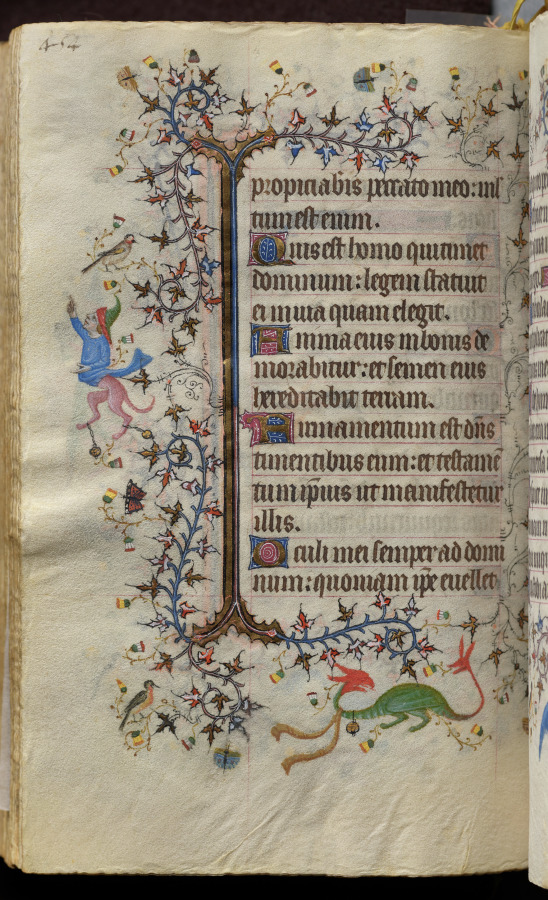 454
propiciabis peccato meo: ml
tum est enim.
Quis est homo qui timet
dominum: legem statuit
ei in via quam elegit.
Anima eius in bonis de
morabitur: et semen eius
hereditabit terram.
Firmamentum est dñs
timentibus eum: et testamē
tum ip̄ius ut manifestetur
illis.
Oculi mei semper ad domi
num: quoniam ip̄e evellet